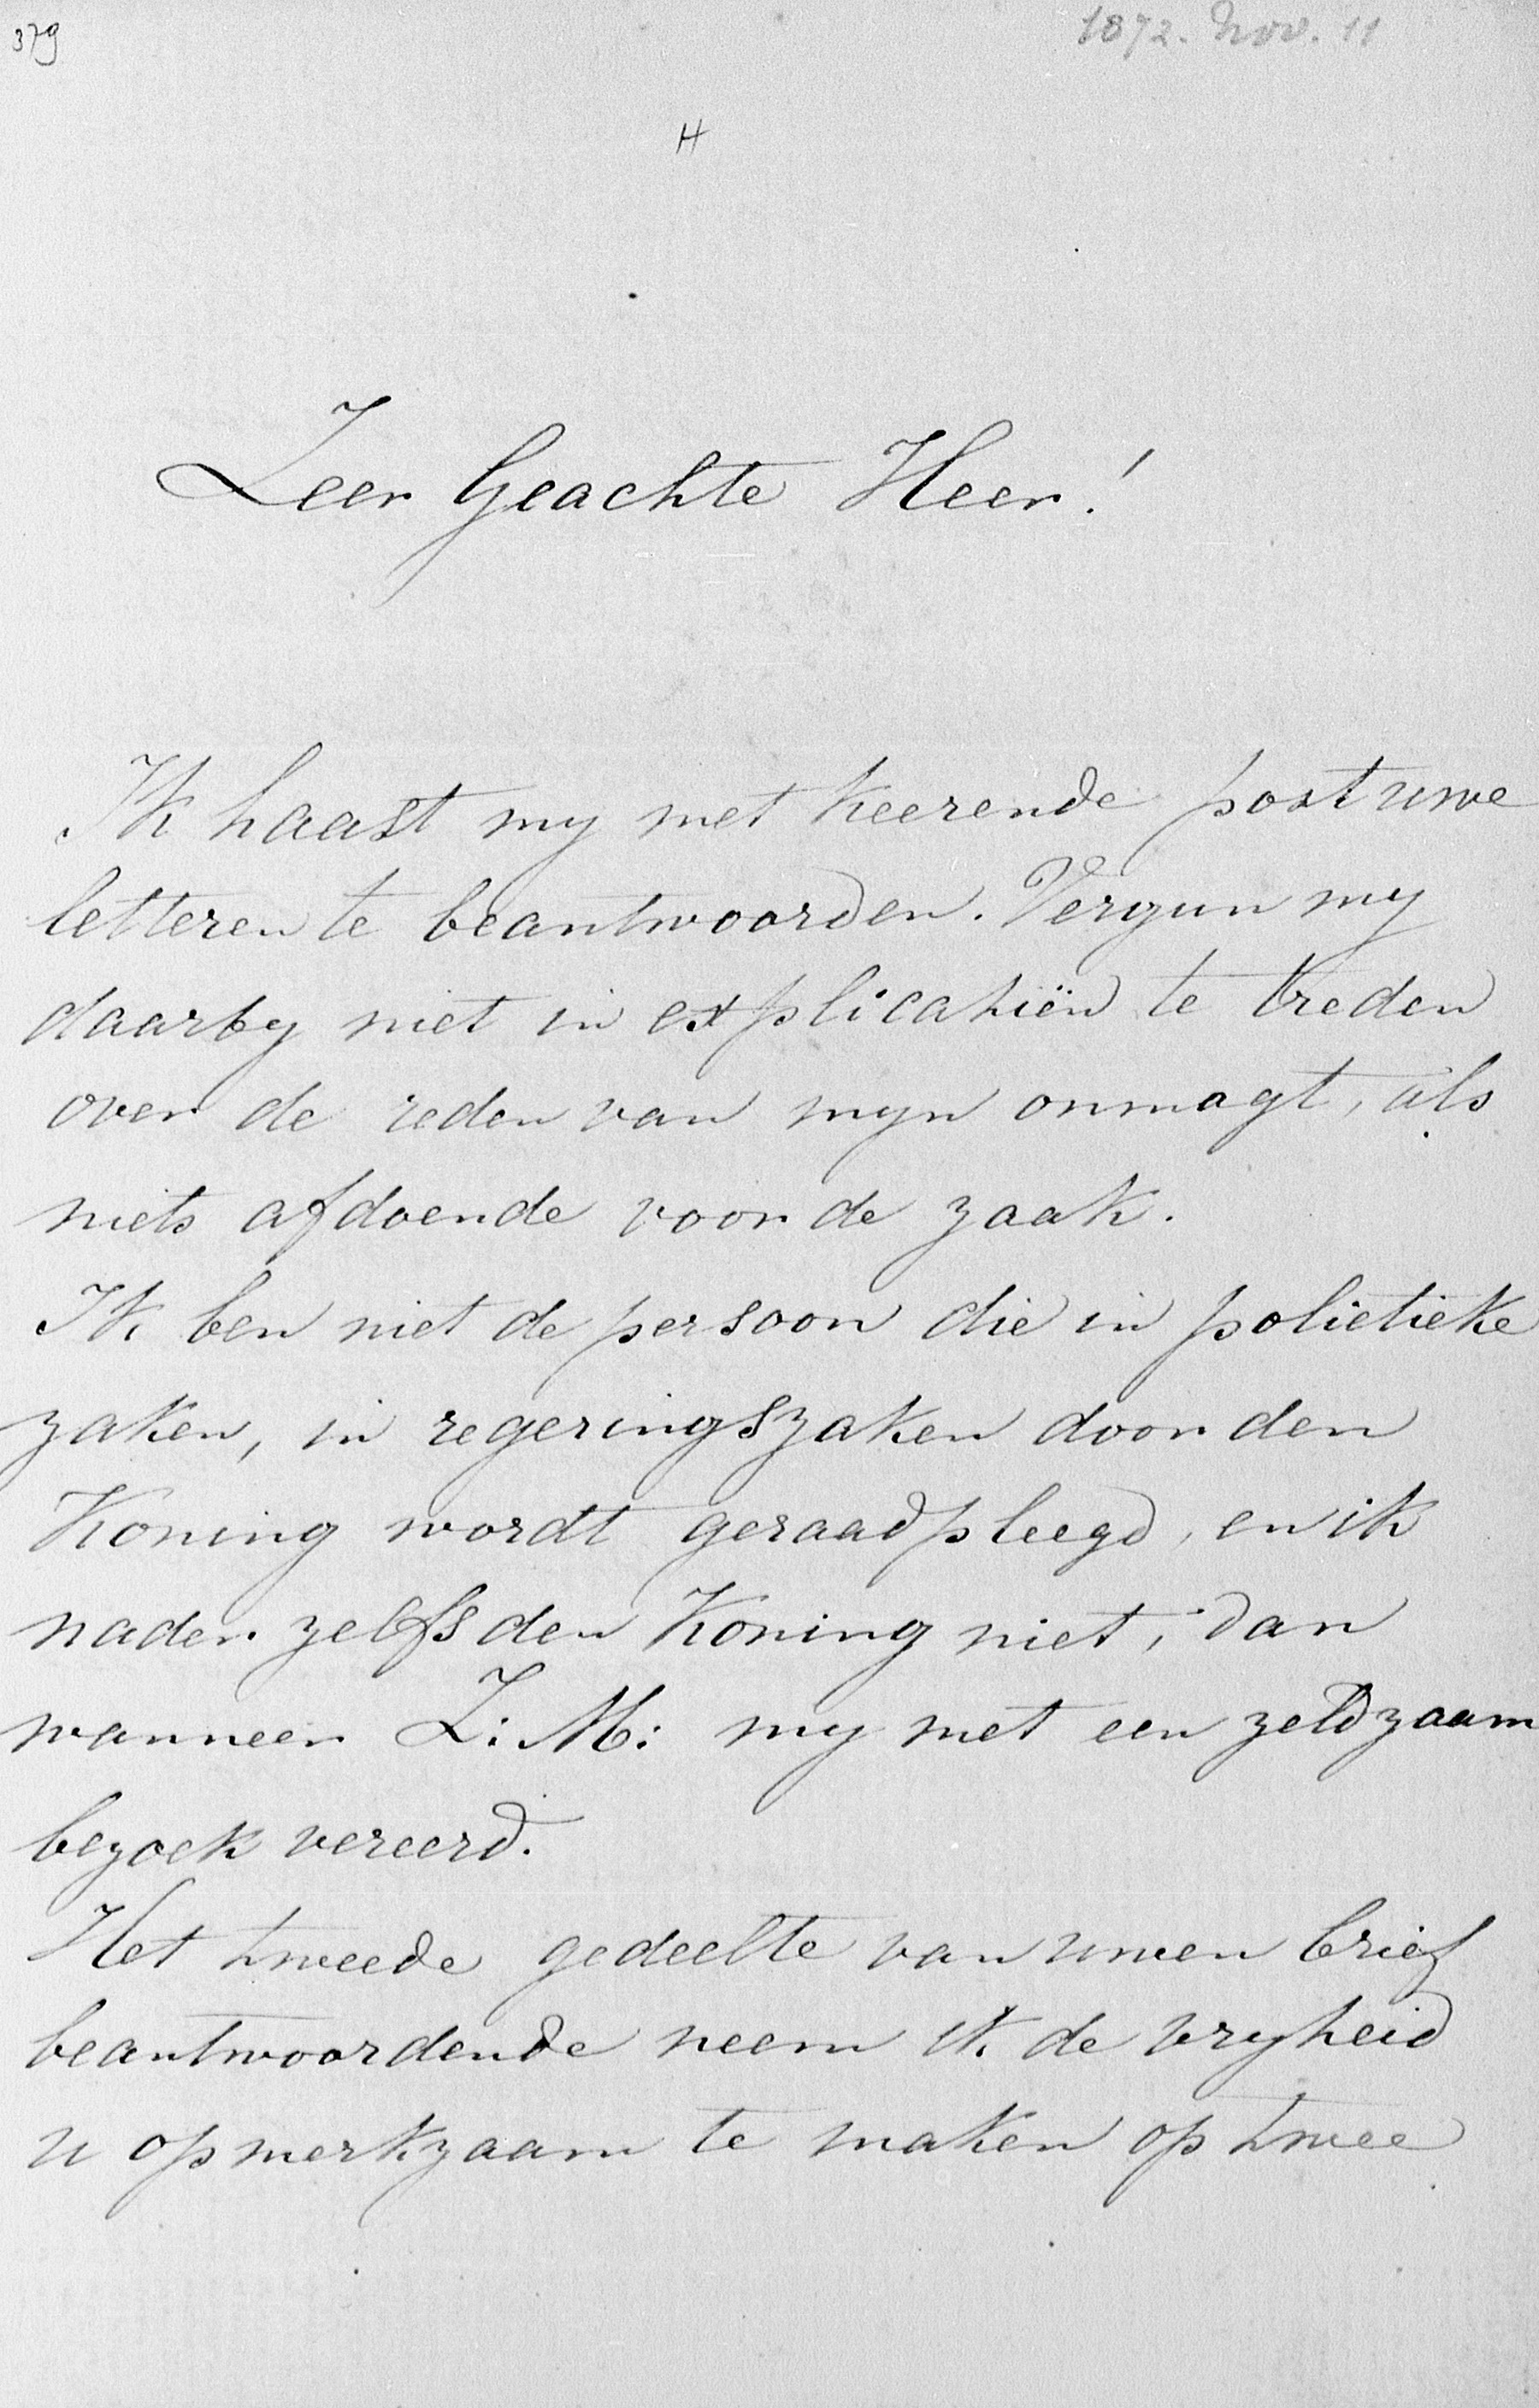 379
1872. Nov. 11
H
Zeer Geachte Heer!
Ik haast my met keerende post uwe
letteren te beantwoorden. Vergun my
daarby niet in explicatiën te treden
over de reden van myn onmagt, als
niets afdoende voor de zaak.
Ik ben niet de persoon die in polietieke
zaken, in regeringszaken door den
Koning wordt geraadpleegd, en ik
nader zelfs den Koning niet, dan
wanneer Z: M: my met een zeldzaam
bezoek vereerd.
Het tweede gedeelte van uwen brief
beantwoordende neem ik de vryheid
u opmerkzaam te maken op twee